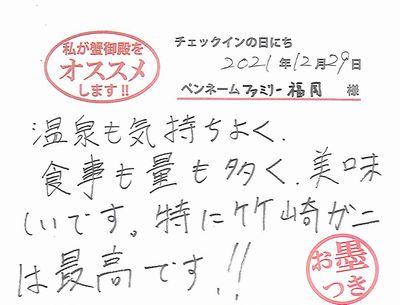 私が蟹御殿を
オススメ
します!!
チェックインの日にち
2021年12月29日
ペンネーム ファミリー福岡 様
温泉も気持ちよく、
食事も量も多く、美味
しいです。特に竹崎ガニ
は最高です!!
お墨
つき